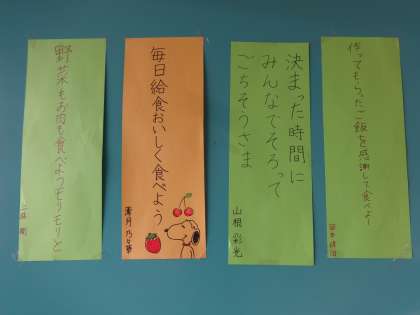 決まった時間に
みんなでそろって
ごちそうさま
山根 彩光
毎日給食おいしく食べよう
野菜もお肉も食べようモリモリと
作ってもらったご飯を感謝して食べよー